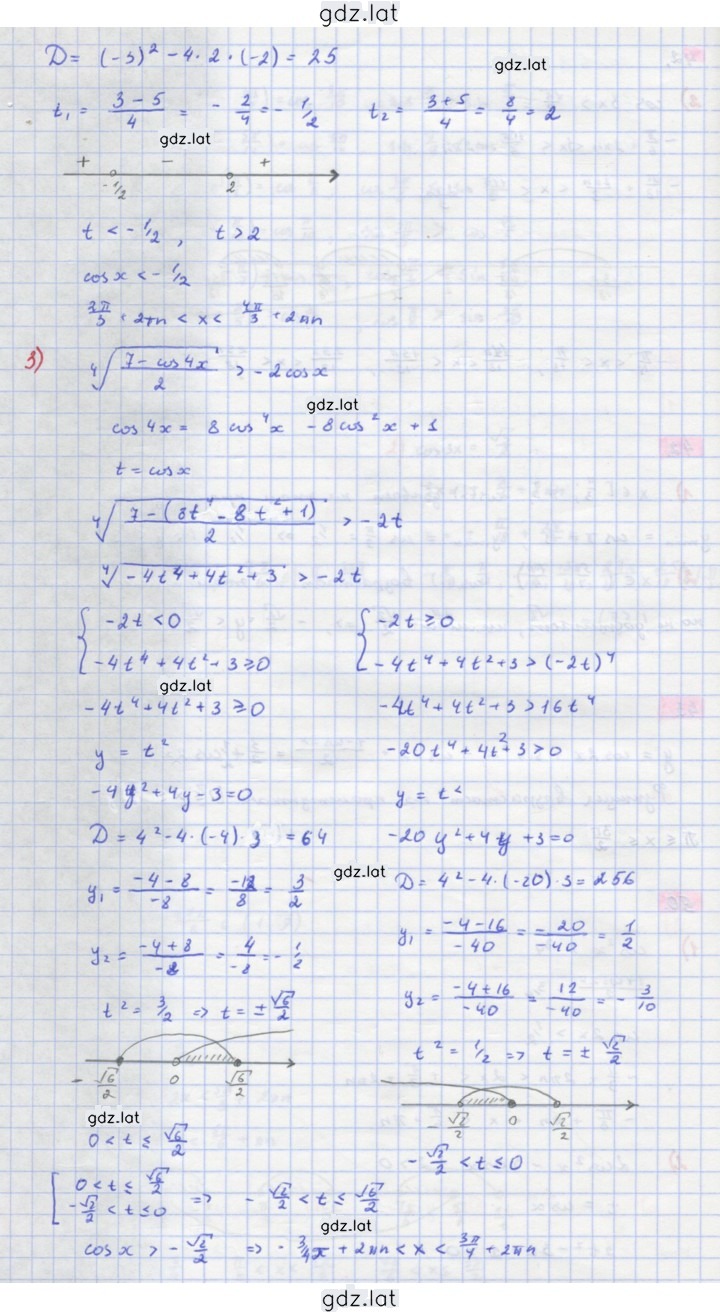 gdz.lat
D = (-3)² - 4·2·(-2) = 25
gdz.lat
t₁ = (3-5)/4 = -2/4 = -1/2    t₂ = (3+5)/4 = 8/4 = 2
gdz.lat
+ - +
-1/2 2
t < -1/2 , t > 2
cos x < -1/2
2π/3 + 2πn < x < 4π/3 + 2πn
3) ⁴√((7 - cos4x)/2) > -2cosx
gdz.lat
cos4x = 8cos⁴x - 8cos²x + 1
t = cosx
⁴√((7 - (8t⁴ - 8t² + 1))/2) > -2t
⁴√(-4t⁴ + 4t² + 3) > -2t
{ -2t < 0    { -2t ≥ 0
-4t⁴ + 4t² + 3 ≥ 0    -4t⁴ + 4t² + 3 > (-2t)⁴
gdz.lat
-4t⁴ + 4t² + 3 ≥ 0    -4t⁴ + 4t² + 3 > 16t⁴
y = t²    -20t⁴ + 4t² + 3 > 0
-4y² + 4y - 3 = 0    y = t²
D = 4² - 4·(-4)·3 = 64    -20y² + 4y + 3 = 0
gdz.lat
y₁ = (-4-8)/-8 = -12/8 = 3/2    D = 4² - 4·(-20)·3 = 256
y₂ = (-4+8)/-8 = 4/-8 = -1/2    y₁ = (-4-16)/-40 = -20/-40 = 1/2
t² = 3/2 => t = ±√6/2    y₂ = (-4+16)/-40 = 12/-40 = -3/10
-√6/2 0 √6/2    t² = 1/2 => t = ±√2/2
gdz.lat
-√2/2 0 √2/2
0 < t ≤ √6/2    -√2/2 < t ≤ 0
[ 0 < t ≤ √6/2
-√2/2 < t ≤ 0 => -√2/2 < t ≤ √6/2
gdz.lat
cosx > -√2/2 => -3/4π + 2πn < x < 3π/4 + 2πn
gdz.lat